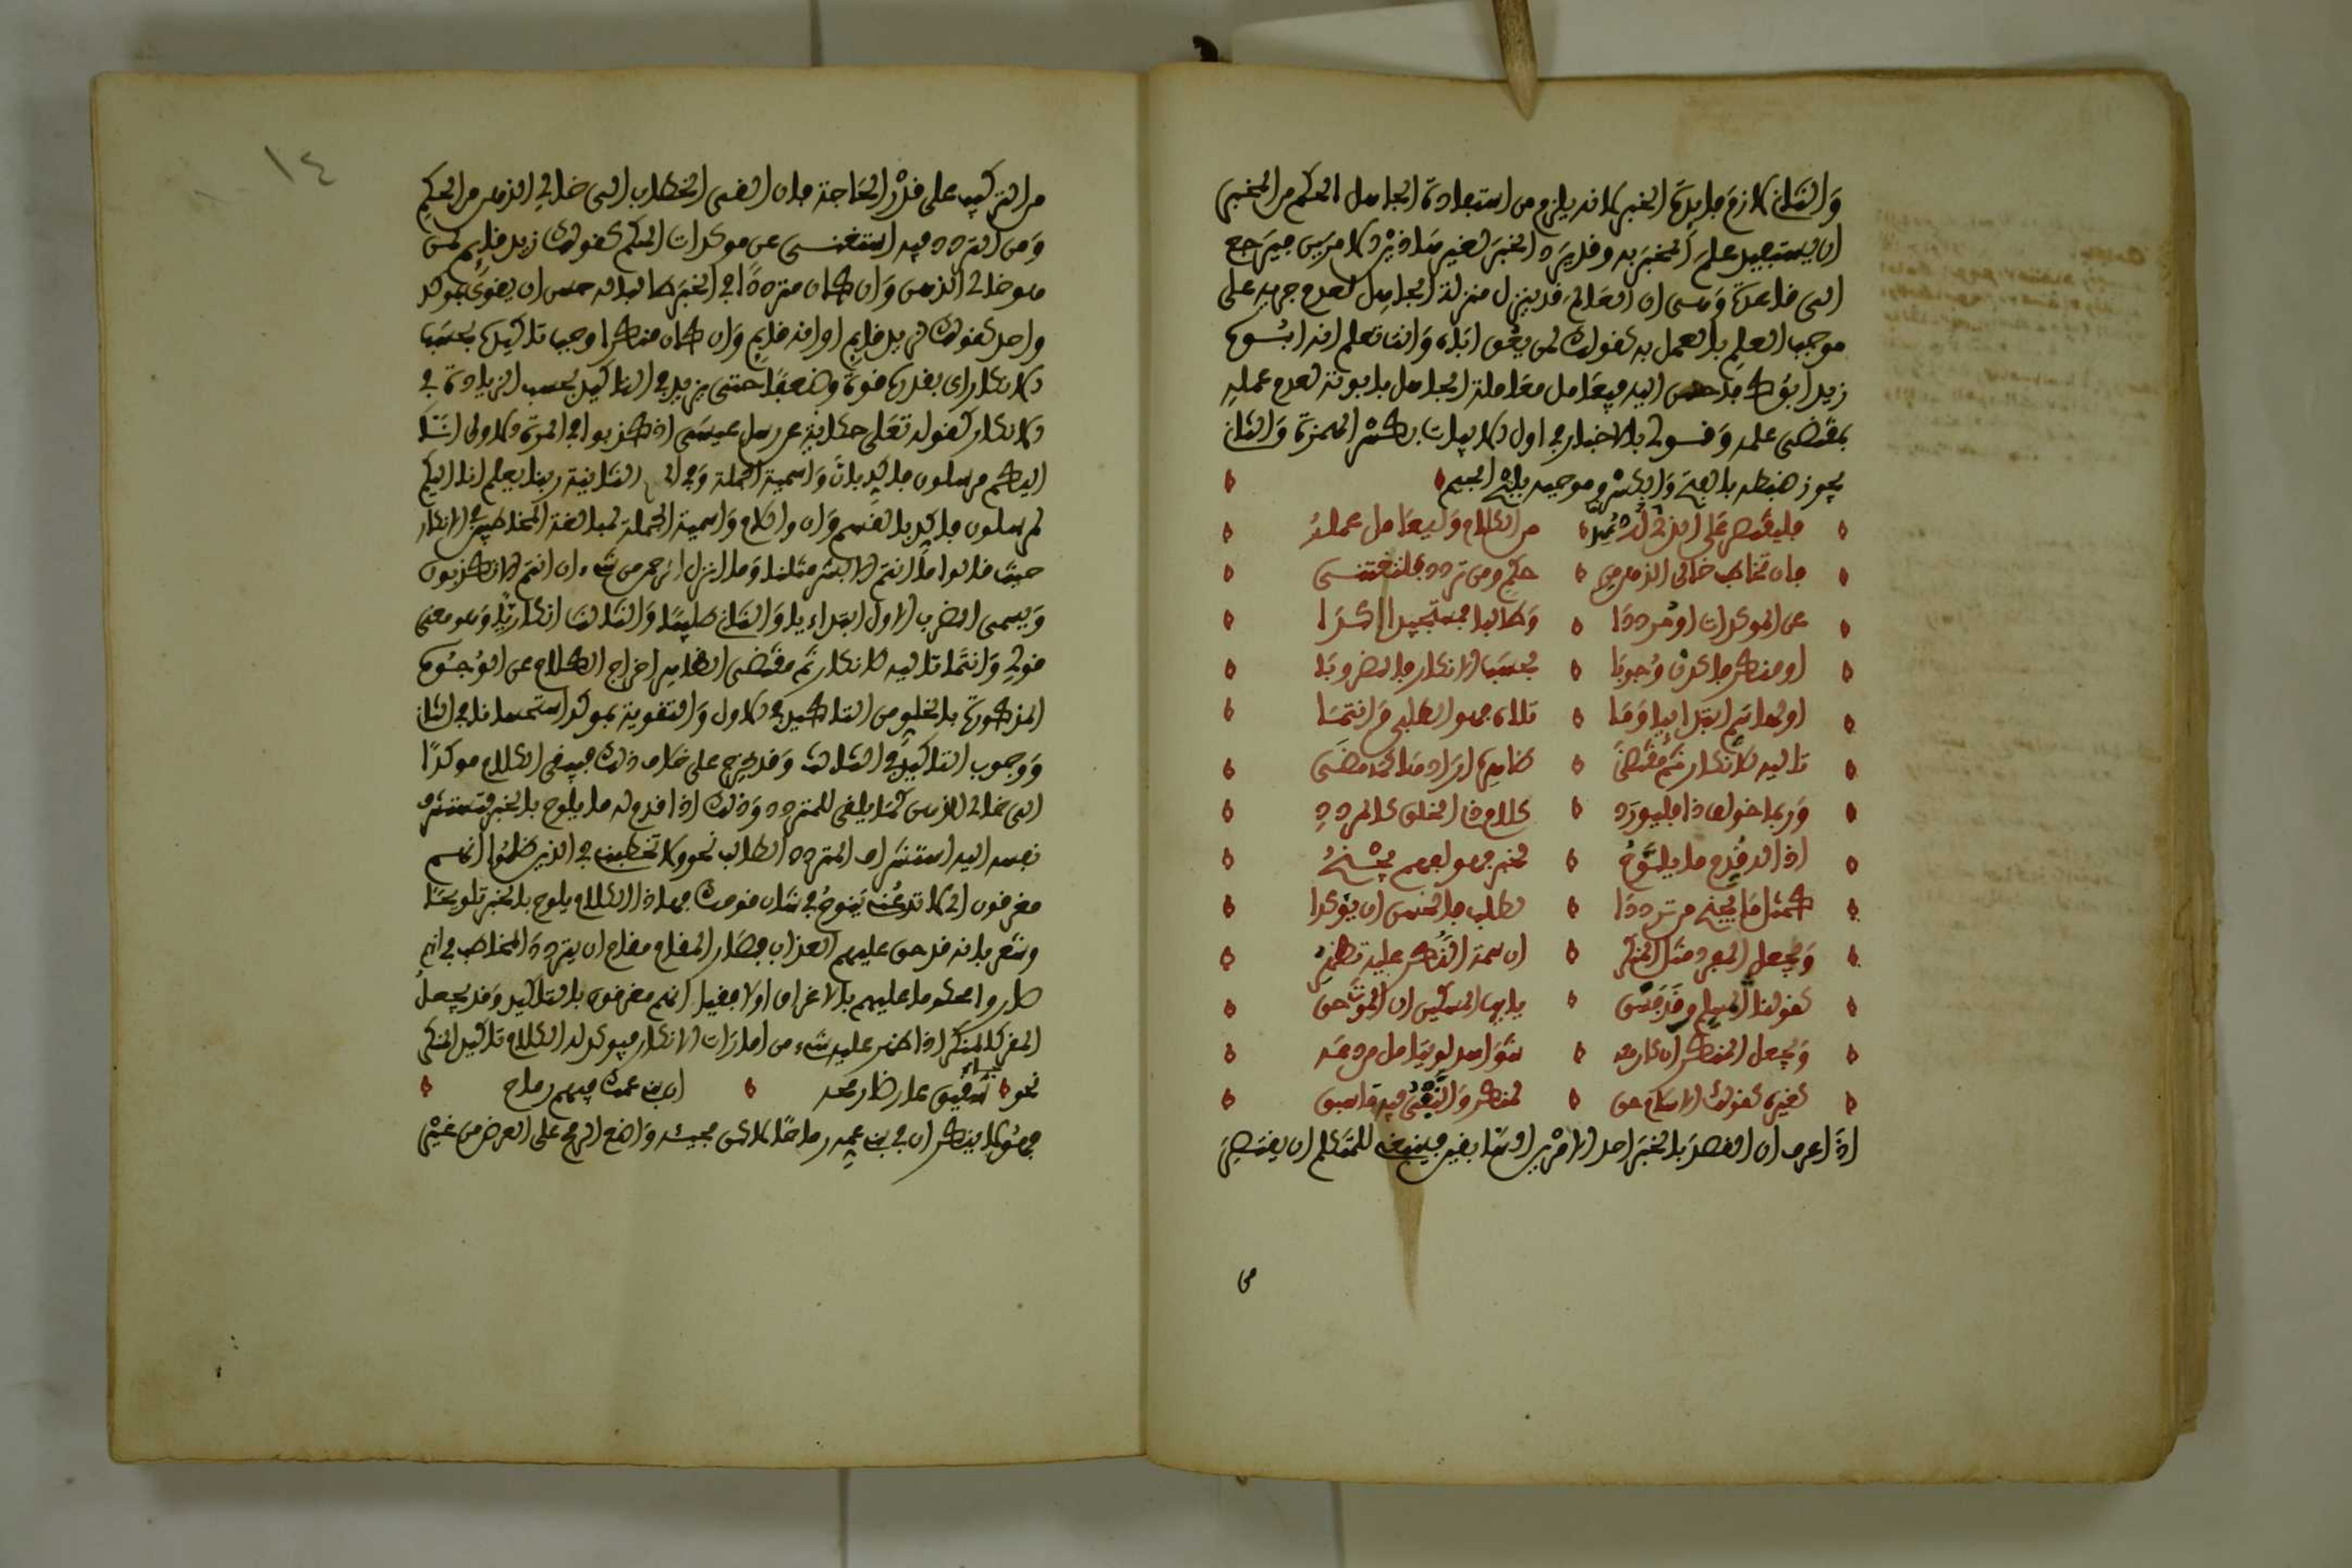 وَالثاني لازم فايدة الخبر لانه يلزم من استفادة الجاهل الحكم من المخبر
ان يستفيد علم المخبر به وقد يرد الخبر لغير هاذين الامرين فيرجع
الى قاعدة وهي ان العالم قد ينزل منزلة الجاهل لعدم جريه على
موجب العلم بالعمل به كقولك لمن يعق اباه وانت تعلم انه ابوه
زيد ابوك فاحسن اليه فيعامل معاملة الجاهل بابوته لعدم عمله
بمقتضى علمه وقولي بالاخبار في اول الابيات بكسر الهمزة والثاني
يجوز ضبطه بالفتح والكسر وموجبه بفتح الجيم
فليقتصر على الذي
من الكلام وليعامل عمله
فان تخاطب خالي الذهن من
حكم ومن تردد فلتغتني
عن المؤكدات او مرددا
وطالبا فمستجيدا اكدا
او منكر فاكدن وجوبا
بحسب الانكار فالضروبا
اولها سم ابتدائيا وما
تلاه فهو الطلبي وانتما
تاليه للانكار ثم مقتضى
ظاهره ايراد هذا كما مضى
وربما خولف ذا فليورد
كلام ذي الخلو كالمردد
اذا له قدم ما يلوح
بخبر فهو لفهم يجنح
كمثل ما يجنح من ترددا
لطلب فالحسن ان يؤكدا
ويجعل المقر مثل المنكر
ان سمة النكر عليه تظهر
كقولنا لمسلم وقد فسق
يايها المسكين ان الموت حق
ويجعل المنكر ان كان معه
شواهد لو يتامل مردعه
كغيره كقولك الاسلام حق
لمنكر والنفي فيه ما سبق
اذا عرف ان القصد بالخبر احد الامرين السابقين فينبغي للمتكلم ان يقتصر
من
١٤
من التركيب على قدر الحاجة فان القى الخطاب الى خالي الذهن من الحكم
ومن التردد فيه استغنى عن موكدات الحكم كقولك زيد قايم لمن
هو خالي الذهن وان كان مترددا في الخبر طالبا له حسن ان يقوى بموكد
واحد كقولك لزيد قايم او انه قايم وان كان منكرا وجب تاكيده بحسب
الانكار اي بقدره قوة وضعفا حتى يزيد في التاكيد بحسب الزيادة في
الانكار كقوله تعلى حكاية عن رسل عيسى اذ كذبوا في المرة الاولى انا
اليكم مرسلون فاكد بان واسمية الجملة وفي الثانية ربنا يعلم انا اليكم
لمرسلون فاكد بالقسم وان واللام واسمية الجملة لمبالغة المخاطبين في الانكار
حيث قالوا ما انتم الا بشر مثلنا وما انزل الرحمن من شيء ان انتم الا تكذبون
ويسمى الضرب الاول ابتداءيا والثاني طلبيا والثالث انكاريا وهو معنى
قولي وانتما تاليه للانكار ثم مقتضى الظاهر اخراج الكلام على الوجوه
المذكورة بالخلو من التاكيد في الاول والتقوية بموكد استحسانا في الثاني
ووجوب التاكيد في الثالث وقد يخرج على خلاف ذلك فيلقى الكلام موكدا
الى خالي الذهن كما يلقى للمتردد وذلك اذا قدم له ما يلوح بالخبر فتستشرف
نفسه اليه استشراف المتردد الطالب نحو ولا تخاطبني في الذين ظلموا انهم
مغرقون اي لا تدعني يا نوح في شان قومك فهاذا الكلام يلوح بالخبر تلويحا
وشعر بانه قد حق عليهم العذاب فصار المقام مقام ان يتردد المخاطب في انهم
صاروا محكوما عليهم بالاغراق اولا فقيل انهم مغرقون بالتاكيد وقد يجعل
المقر كالمنكر اذا ظهر عليه شيء من امارات الانكار فيوكد له الكلام تاكيد المنكر
نحو جاء شقيق عارضا رمحه ان بني عمك فيهم رماح
فهو لا ينكر ان في بني عمه رماحا لاكن مجيئه واضع الرمح على العرض من غير